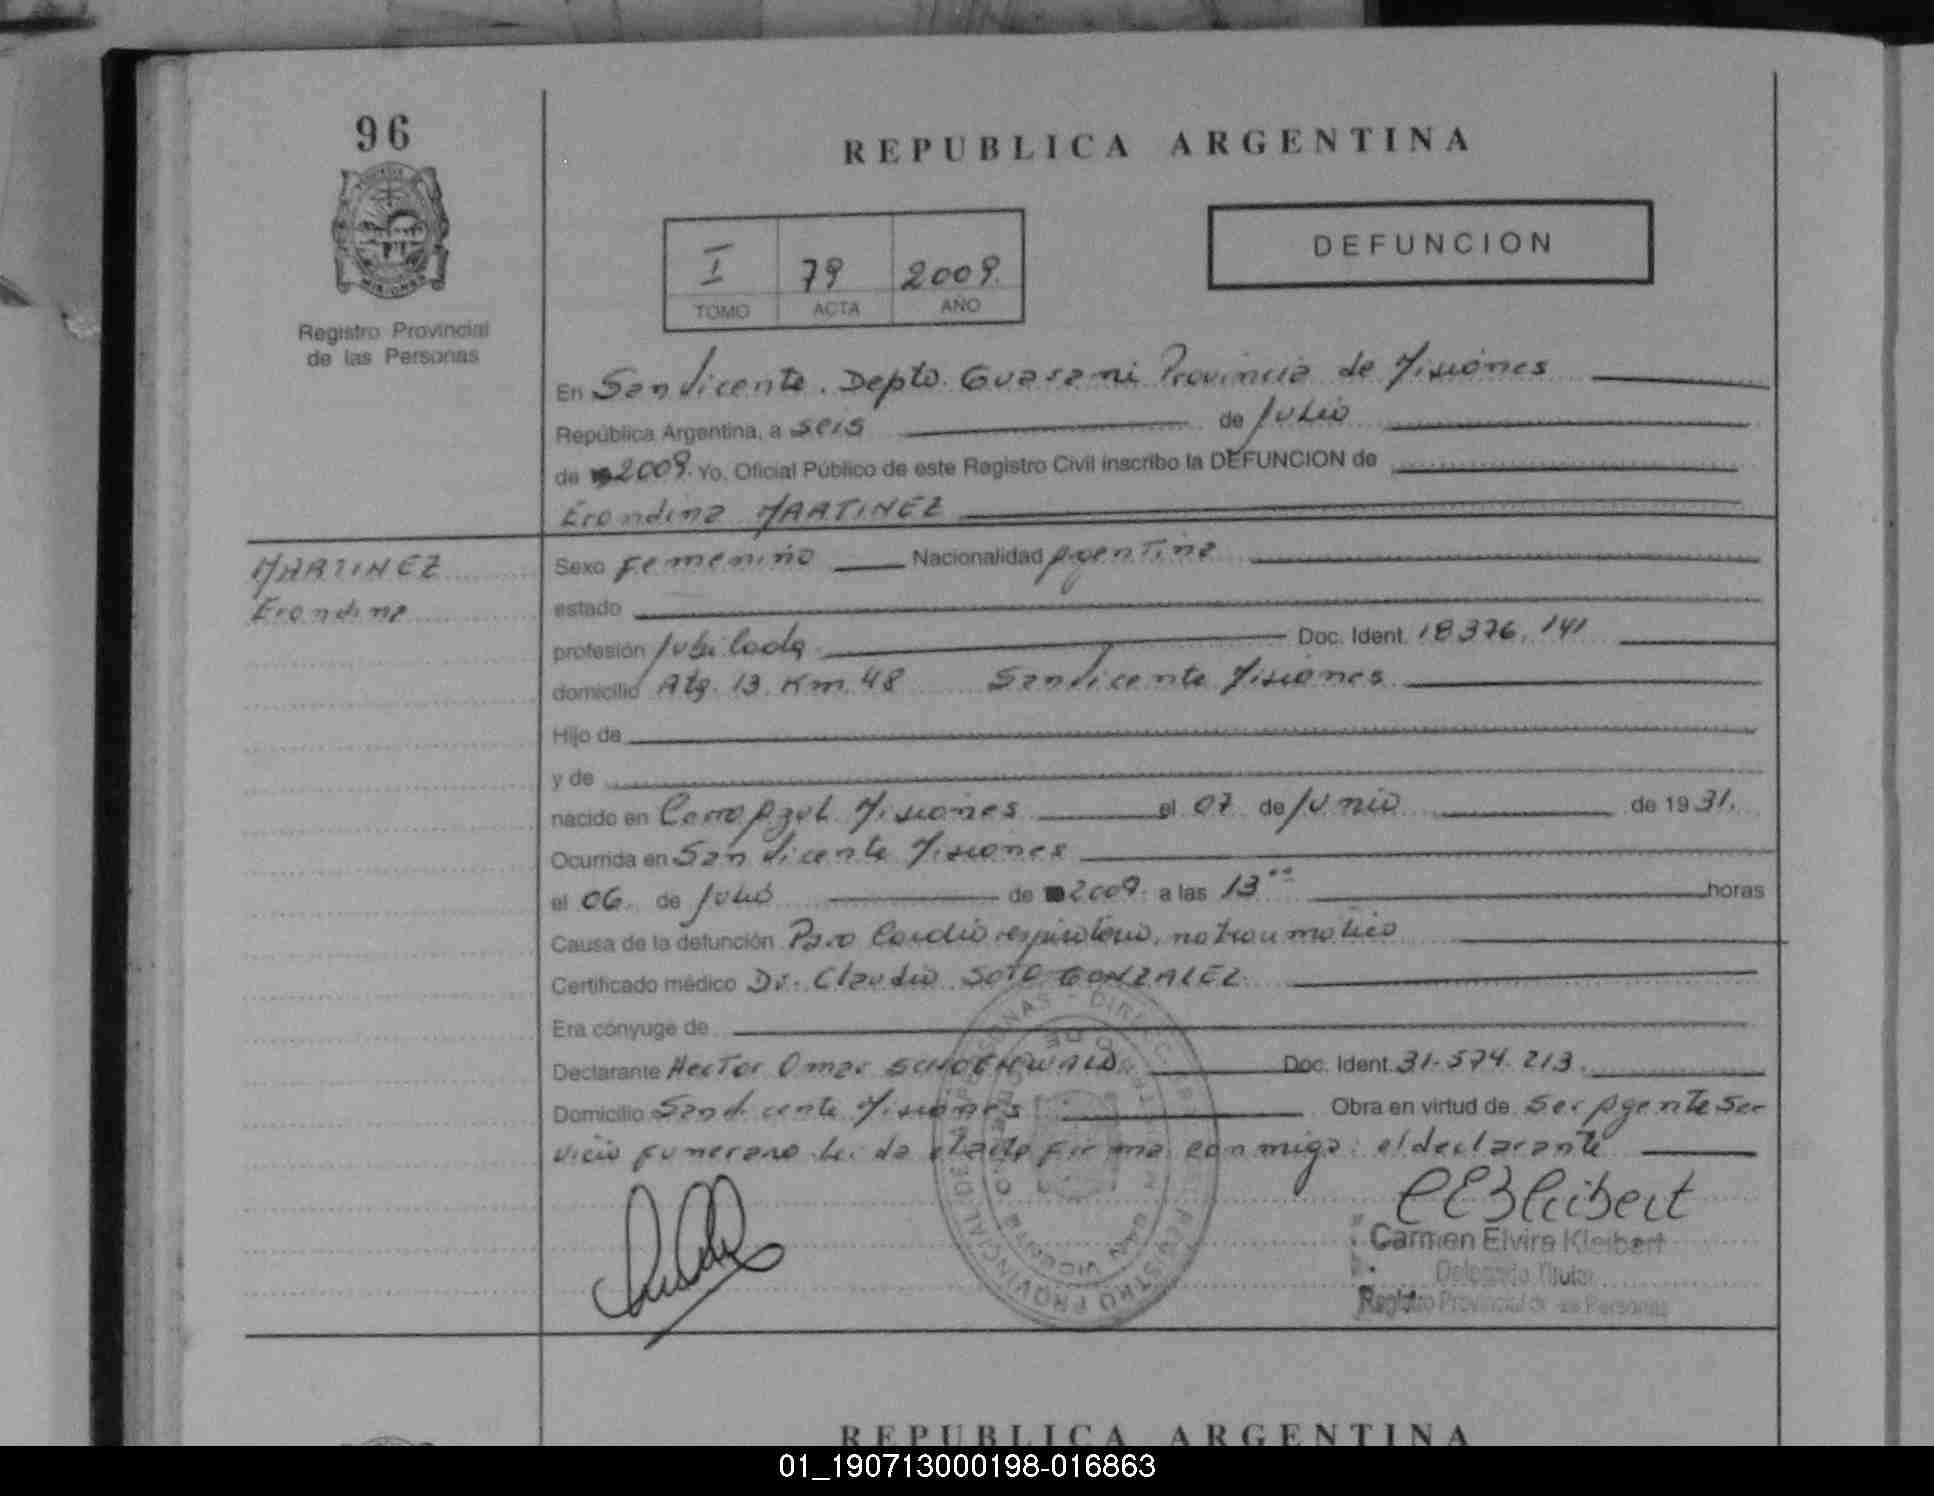 96
REPUBLICA ARGENTINA
DEFUNCION
I 79 2009.
TOMO ACTA AÑO
Registro Provincial
de las Personas
En San Vicente. Depto. Guarani Provincia de Misiones
República Argentina, a seis de Julio
de 2009. Yo, Oficial Público de este Registro Civil inscribo la DEFUNCION de
Erondina MARTINEZ
MARTINEZ
Erondina
Sexo Femenino Nacionalidad Argentina
estado
profesión Jubilada Doc. Ident. 18376.141
domicilio Km. 48 San Vicente Misiones
Hijo de
y de
nacido en Cerro Azul Misiones el 07 de Junio de 1931.
Ocurrida en San Vicente Misiones
el 06 de Julio de 2009. a las 13 horas
Causa de la defunción Paro Cardio respiratorio, no traumatico
Certificado médico Dr. Claudio SOTO GONZALEZ
Era cónyuge de
Declarante Hector Omar SCHOENWALD Doc. Ident. 31.574.213.
Domicilio San Vicente Misiones Obra en virtud de ser Agente Ser
vicio funerario el acta firma conmigo: el declarante
Carmen Elvira Kleibert
Delegada Titular
Registro Provincial de las Personas
REPUBLICA ARGENTINA
01_190713000198-016863